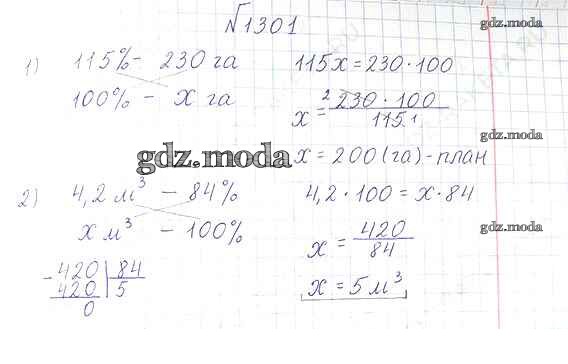 №1301
1) 115% - 230 га
100% - x га
115x = 230 · 100
x = 230 · 100 / 115
2 1
x = 200 (га) - план
2) 4,2 м³ - 84%
x м³ - 100%
4,2 · 100 = x · 84
x = 420 / 84
x = 5 м³
- 420 | 84
420 | 5
0
gdz.moda
gdz.moda
gdz.moda
gdz.moda
gdz.moda